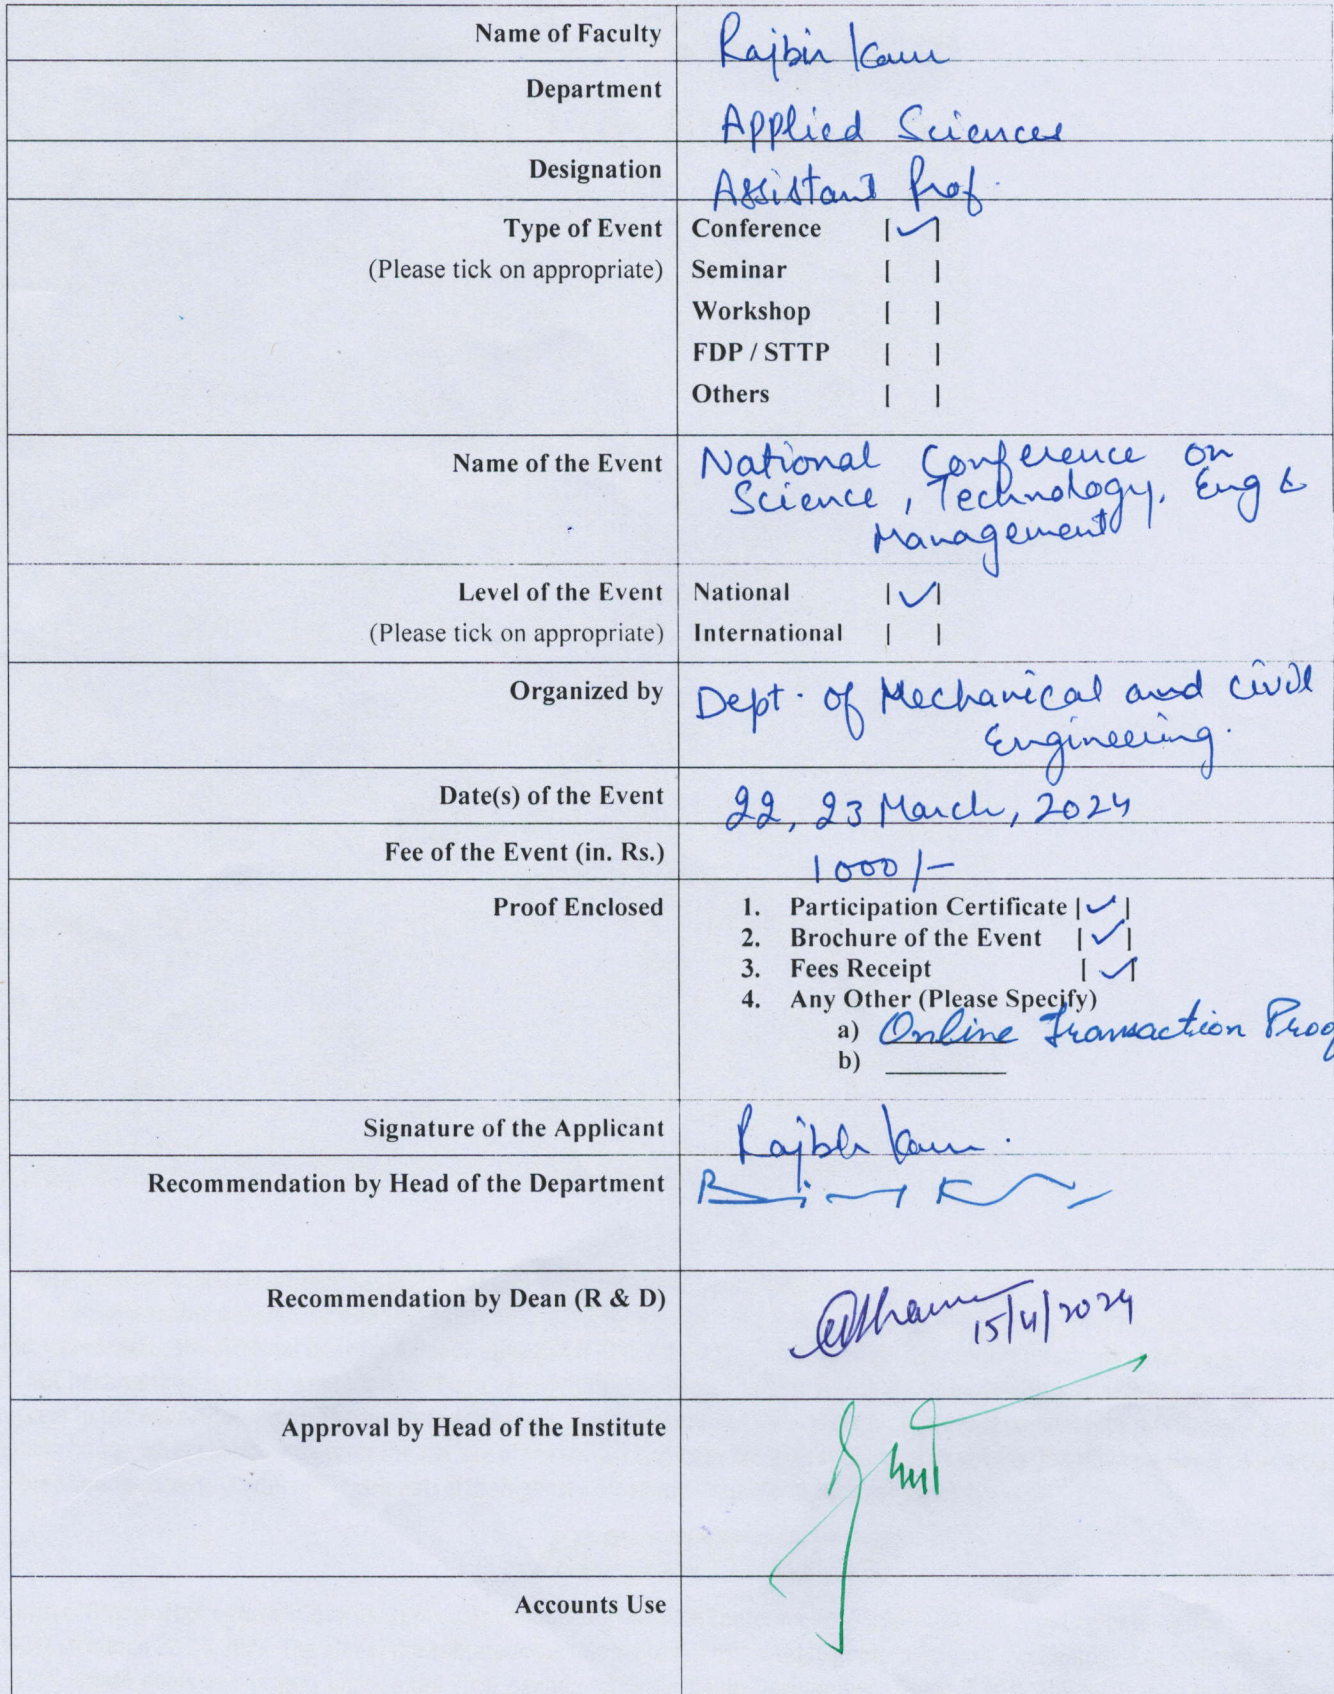 Name of Faculty Rajbir Kaur
Department Applied Sciences
Designation Assistant Prof.
Type of Event Conference [✓]
(Please tick on appropriate) Seminar [ ]
Workshop [ ]
FDP / STTP [ ]
Others [ ]
Name of the Event National Conference on
Science, Technology, Eng &
Management
Level of the Event National [✓]
(Please tick on appropriate) International [ ]
Organized by Dept. of Mechanical and Civil
Engineering.
Date(s) of the Event 22, 23 March, 2024
Fee of the Event (in. Rs.) 1000/-
Proof Enclosed 1. Participation Certificate [✓]
2. Brochure of the Event [✓]
3. Fees Receipt [✓]
4. Any Other (Please Specify)
a) Online Transaction Proof
b) ________
Signature of the Applicant Rajbir Kaur.
Recommendation by Head of the Department
Recommendation by Dean (R & D) 15/4/2024
Approval by Head of the Institute
Accounts Use